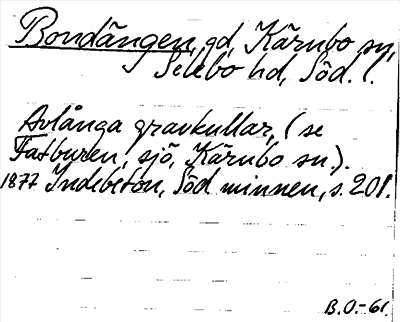 Bondängen, gd, Kärnbo sn,
Selebo hd, Söd. l.
Avlånga gravkullar, (se
Fatburen, sjö, Kärnbo sn.).
1877 Indebetou, Söd minnen, s. 201.
B.O.-61.